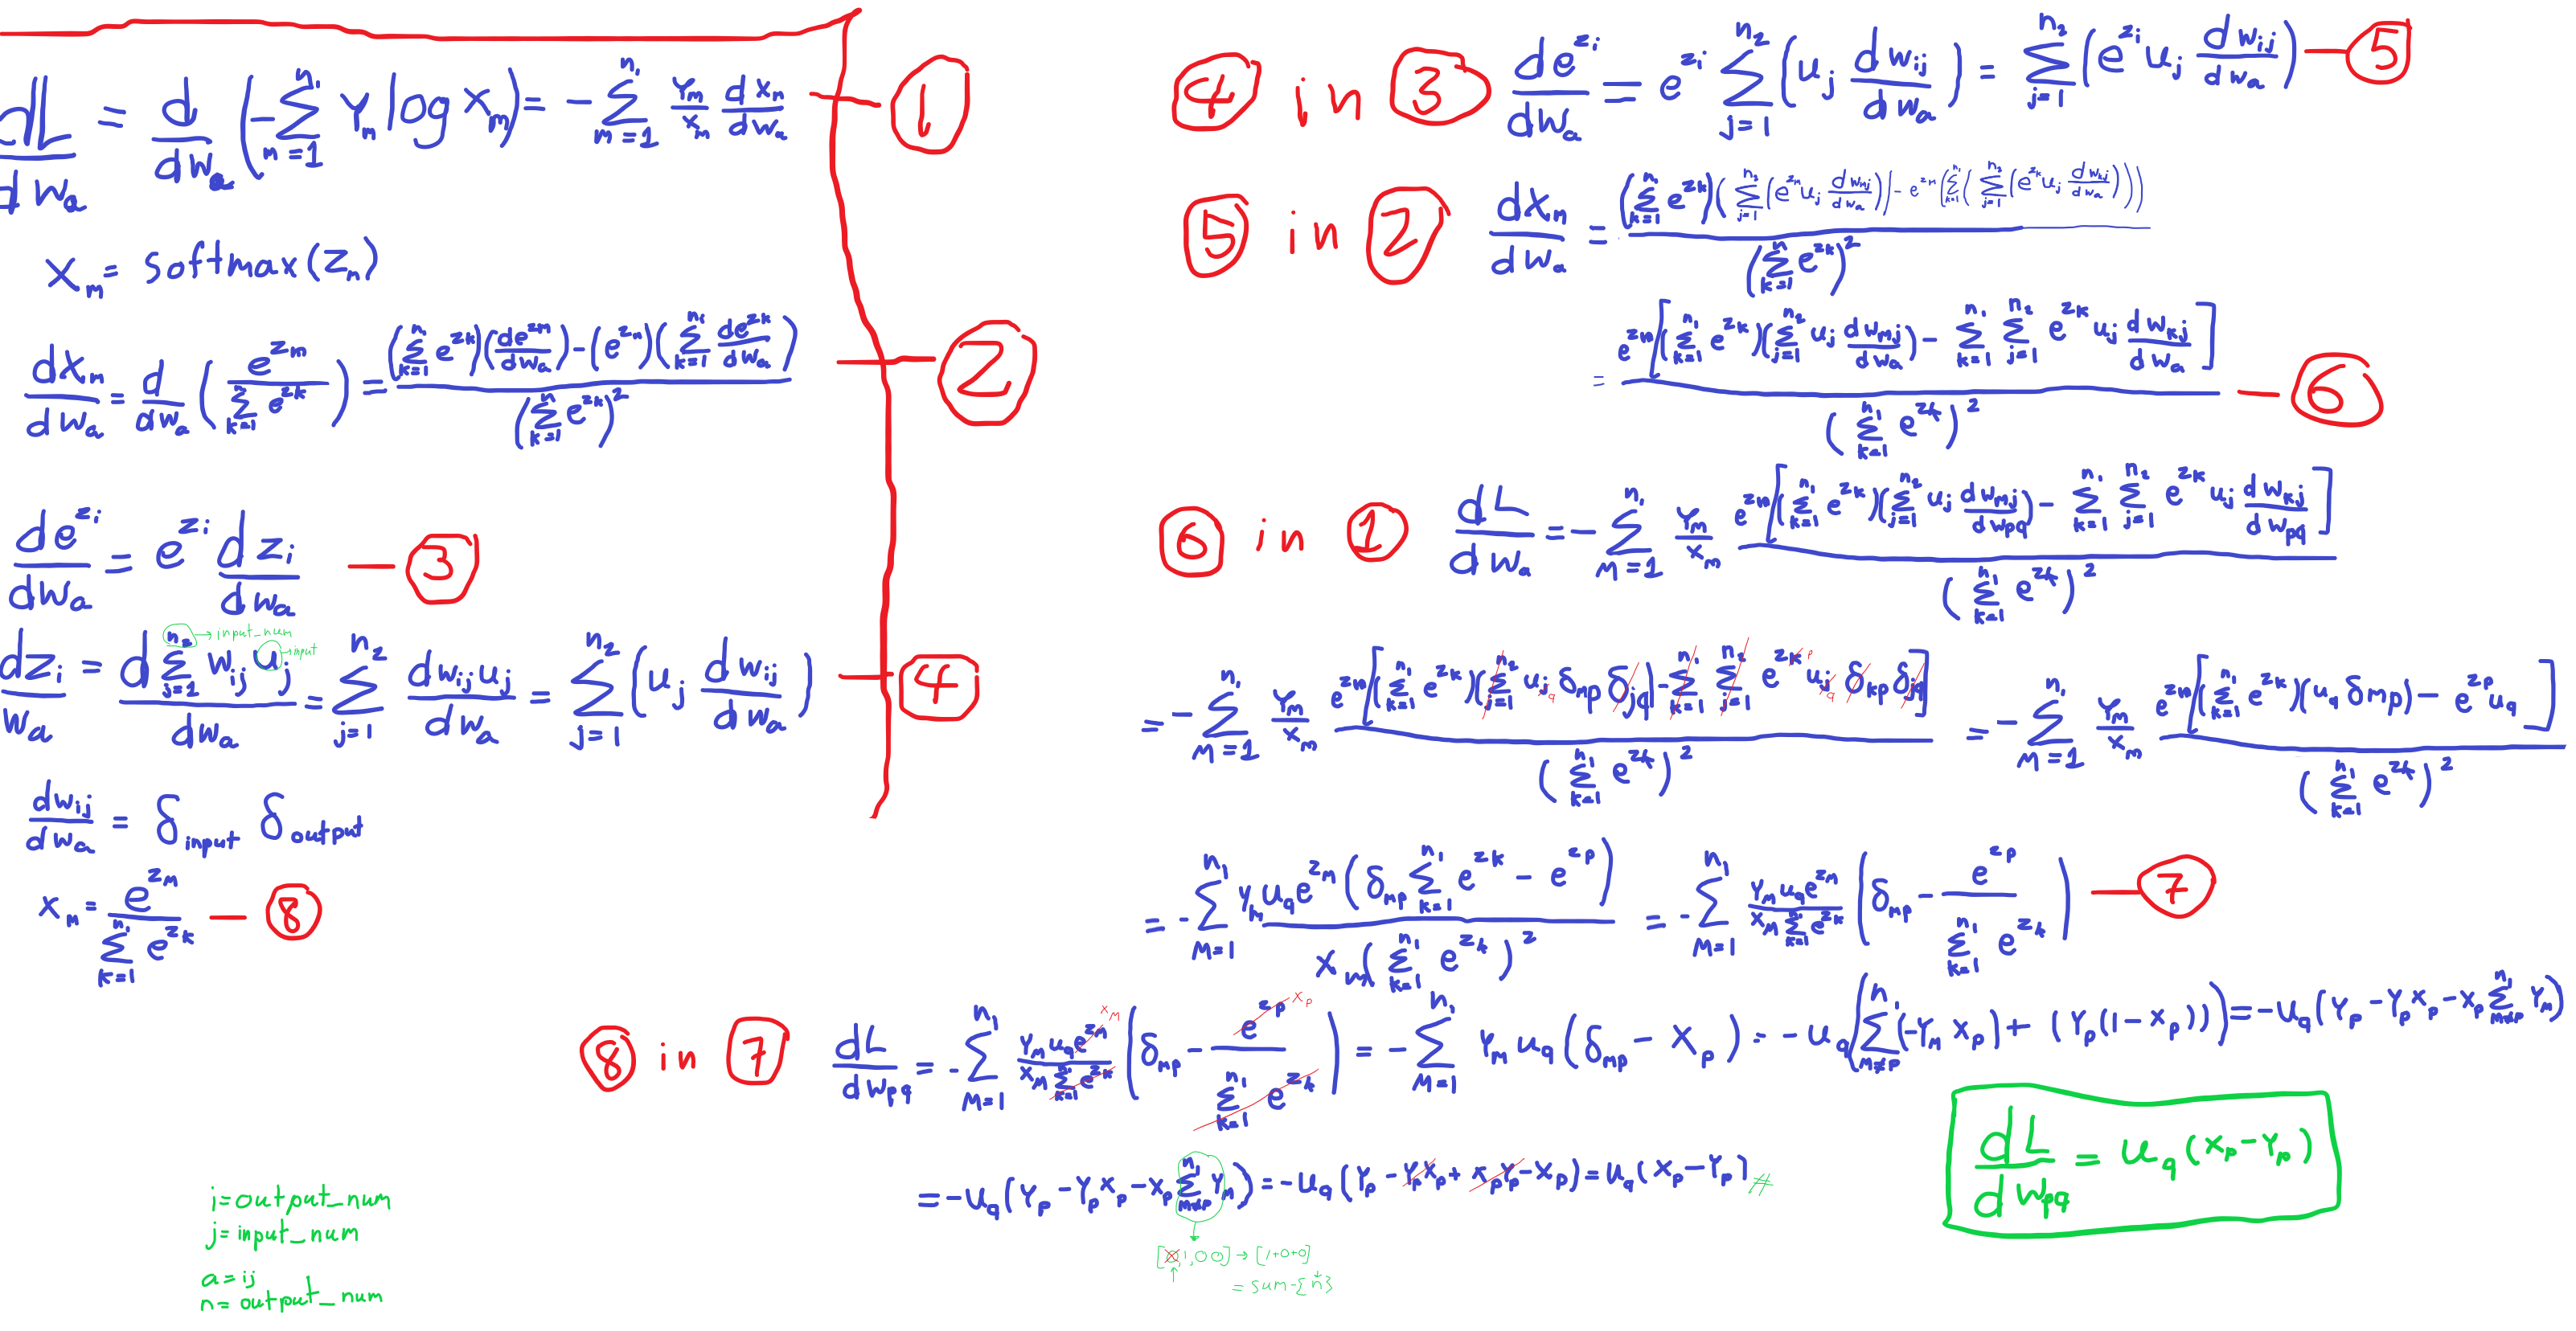 dL/dw_a = d/dw_a (-∑_{m=1}^{n_1} Y_m log X_m) = -∑_{m=1}^{n_1} Y_m/X_m dX_m/dw_a — ①
X_m = softmax(Z_m)
dX_m/dw_a = d/dw_a (e^{z_m} / ∑_{k=1}^{n_1} e^{z_k}) = ((∑_{k=1}^{n_1} e^{z_k})(de^{z_m}/dw_a) - (e^{z_m})(∑_{k=1}^{n_1} de^{z_k}/dw_a)) / (∑_{k=1}^{n} e^{z_k})^2 — ②
de^{z_i}/dw_a = e^{z_i} dz_i/dw_a — ③
n_2 → input_num
u - input
dz_i/w_a = d∑_{j=1}^{n_2} w_{ij} u_j / dw_a = ∑_{j=1}^{n_2} dw_{ij}u_j/dw_a = ∑_{j=1}^{n_2} (u_j dw_{ij}/dw_a) — ④
dw_{ij}/dw_a = δ_{input} δ_{output}
x_m = e^{z_m} / ∑_{k=1}^{n_1} e^{z_k} — ⑧
④ in ③ de^{z_i}/dw_a = e^{z_i} ∑_{j=1}^{n_2} (u_j dw_{ij}/dw_a) = ∑_{j=1}^{n_2} (e^{z_i} u_j dw_{ij}/dw_a) — ⑤
⑤ in ② dX_m/dw_a = ((∑_{k=1}^{n_1} e^{z_k})(∑_{j=1}^{n_2} (e^{z_m} u_j dw_{mj}/dw_a)) - e^{z_m}(∑_{k=1}^{n_1} (∑_{j=1}^{n_2} (e^{z_k} u_j dw_{kj}/dw_a)))) / (∑_{k=1}^{n} e^{z_k})^2
= e^{z_m}[(∑_{k=1}^{n_1} e^{z_k})(∑_{j=1}^{n_2} u_j dw_{mj}/dw_a) - ∑_{k=1}^{n_1} ∑_{j=1}^{n_2} e^{z_k} u_j dw_{kj}/dw_a] / (∑_{k=1}^{n_1} e^{z_k})^2 — ⑥
⑥ in ① dL/dw_a = -∑_{m=1}^{n_1} Y_m/X_m e^{z_m}[(∑_{k=1}^{n_1} e^{z_k})(∑_{j=1}^{n_2} u_j dw_{mj}/dw_{pq}) - ∑_{k=1}^{n_1} ∑_{j=1}^{n_2} e^{z_k} u_j dw_{kj}/dw_{pq}] / (∑_{k=1}^{n_1} e^{z_k})^2
= -∑_{m=1}^{n_1} Y_m/X_m e^{z_m}[(∑_{k=1}^{n_1} e^{z_k})(∑_{j=1}^{n_2} u_j q δ_{mp} δ_{jq}) - ∑_{k=1}^{n_1} ∑_{j=1}^{n_2} e^{z_k} p u_j q δ_{kp} δ_{jq}] / (∑_{k=1}^{n_1} e^{z_k})^2 = -∑_{m=1}^{n_1} Y_m/X_m e^{z_m}[(∑_{k=1}^{n_1} e^{z_k})(u_q δ_{mp}) - e^{z_p} u_q] / (∑_{k=1}^{n_1} e^{z_k})^2
= -∑_{m=1}^{n_1} Y_m u_q e^{z_m}(δ_{mp} ∑_{k=1}^{n_1} e^{z_k} - e^{z_p}) / X_m(∑_{k=1}^{n_1} e^{z_k})^2 = -∑_{m=1}^{n_1} Y_m u_q e^{z_m} / X_m ∑_{k=1}^{n_1} e^{z_k} (δ_{mp} - e^{z_p} / ∑_{k=1}^{n_1} e^{z_k}) — ⑦
⑧ in ⑦ dL/dw_{pq} = -∑_{m=1}^{n_1} Y_m u_q e^{z_m} x_m / X_m ∑_{k=1}^{n_1} e^{z_k} (δ_{mp} - e^{z_p} x_p / ∑_{k=1}^{n_1} e^{z_k}) = -∑_{m=1}^{n_1} Y_m u_q (δ_{mp} - X_p) = -u_q(∑_{m≠p}^{n_1} (-Y_m X_p) + (Y_p(1-X_p))) = -u_q(Y_p - Y_p X_p - X_p ∑_{m≠p}^{n_1} Y_m)
= -u_q(Y_p - Y_p X_p - X_p ∑_{m≠p}^{n_1} Y_m) = -u_q(Y_p - Y_p X_p + X_p Y_p - X_p) = u_q(X_p - Y_p) #
[0,1,00] → [1+0+0]
= sum-{n}
dL/dw_{pq} = u_q(X_p - Y_p)
i=output_num
j=input_num
a=ij
n=output_num